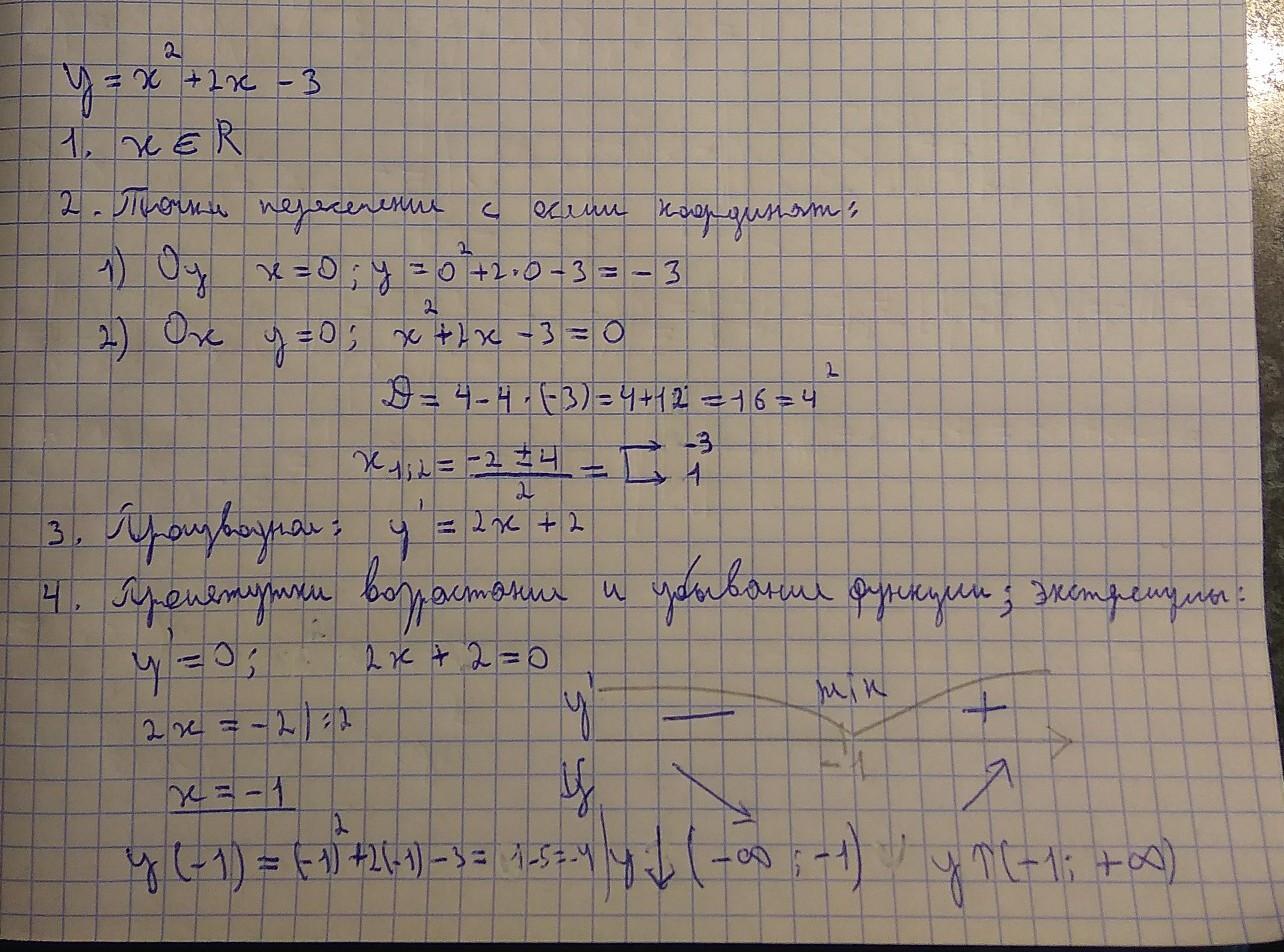 y = x² + 2x - 3
1. x ∈ R
2. Точки пересечения с осями координат:
1) Oy x = 0; y = 0² + 2·0 - 3 = -3
2) Ox y = 0; x² + 2x - 3 = 0
D = 4 - 4·(-3) = 4 + 12 = 16 = 4²
x₁;₂ = (-2 ± 4)/2 = [→ -3 → 1
3. Производная: y' = 2x + 2
4. Промежутки возрастания и убывания функции; экстремумы:
y' = 0; 2x + 2 = 0
y' − min +
2x = -2 | :2
-1
x = -1
y ↘ ↗
y(-1) = (-1)² + 2(-1) - 3 = 1 - 5 = -4 | y ↓ (-∞; -1) y ↑ (-1; +∞)